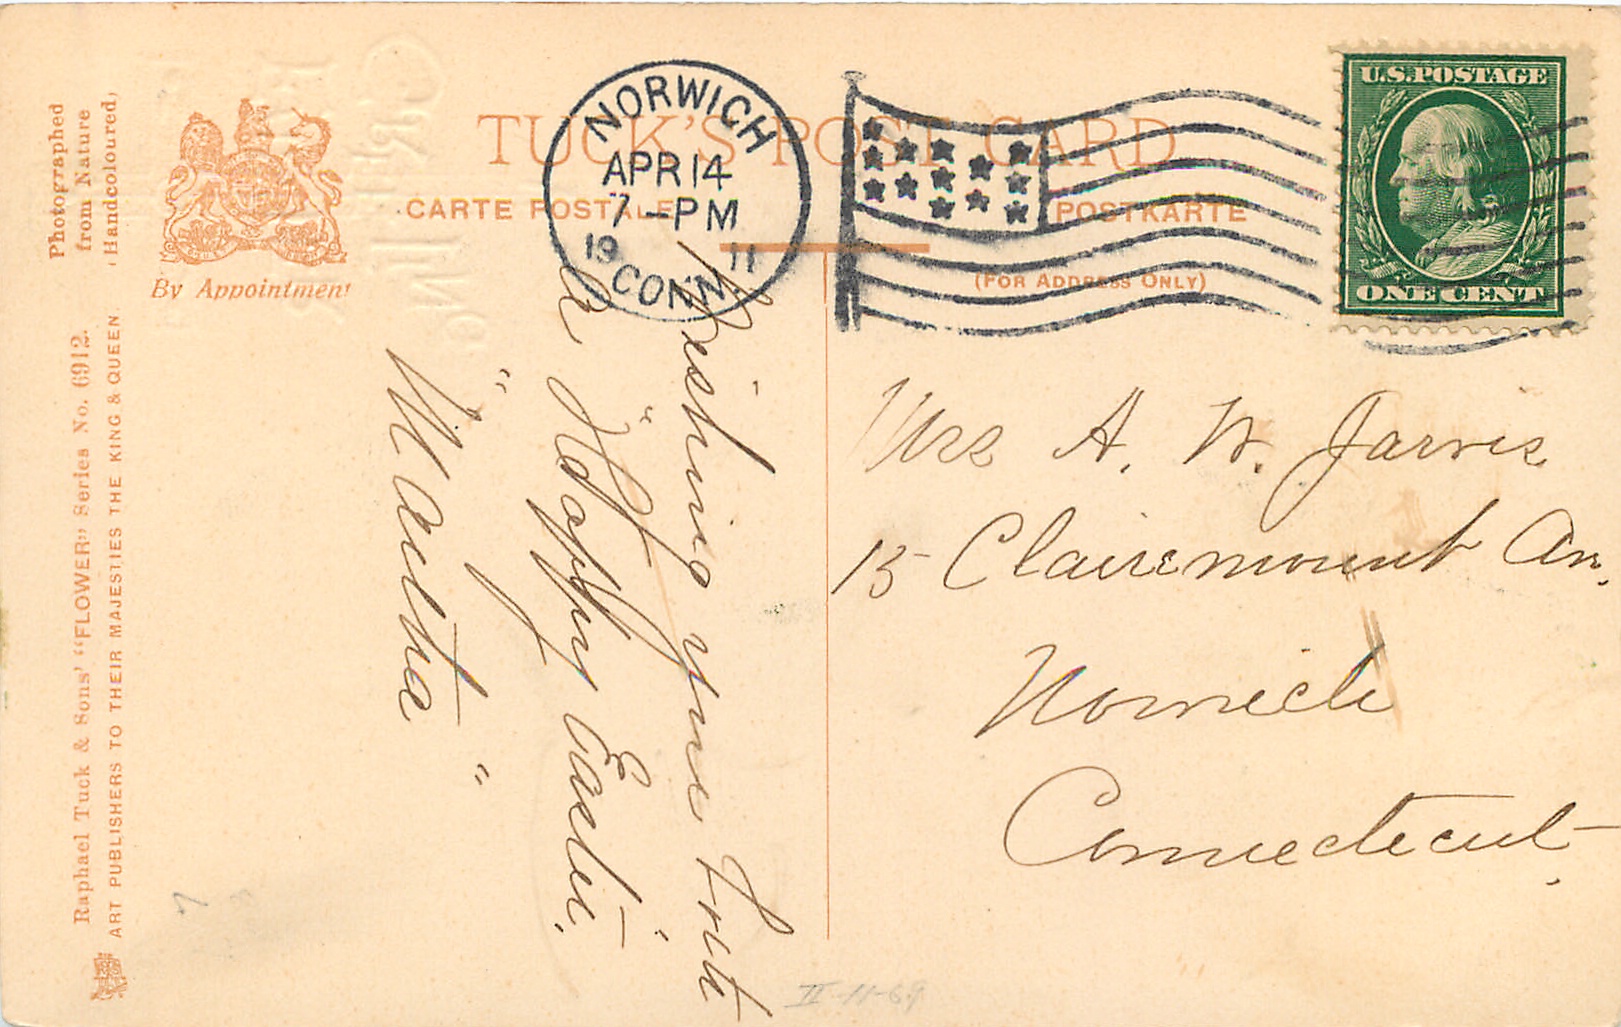 TUCK'S POST CARD
CARTE POSTALE
POSTKARTE
(FOR ADDRESS ONLY)
NORWICH
APR 14
7-PM
19 11
CONN.
U.S. POSTAGE
ONE CENT
By Appointment
Photographed
from Nature
Handcoloured,
Raphael Tuck & Sons' "FLOWER" Series No. 6912.
ART PUBLISHERS TO THEIR MAJESTIES THE KING & QUEEN.
Wishing you
a "Happy Easter."
"Martha"
Mrs A. W. Jarvis
15 Clairemount Av.
Norwich
Connecticut.
II-11-69
7